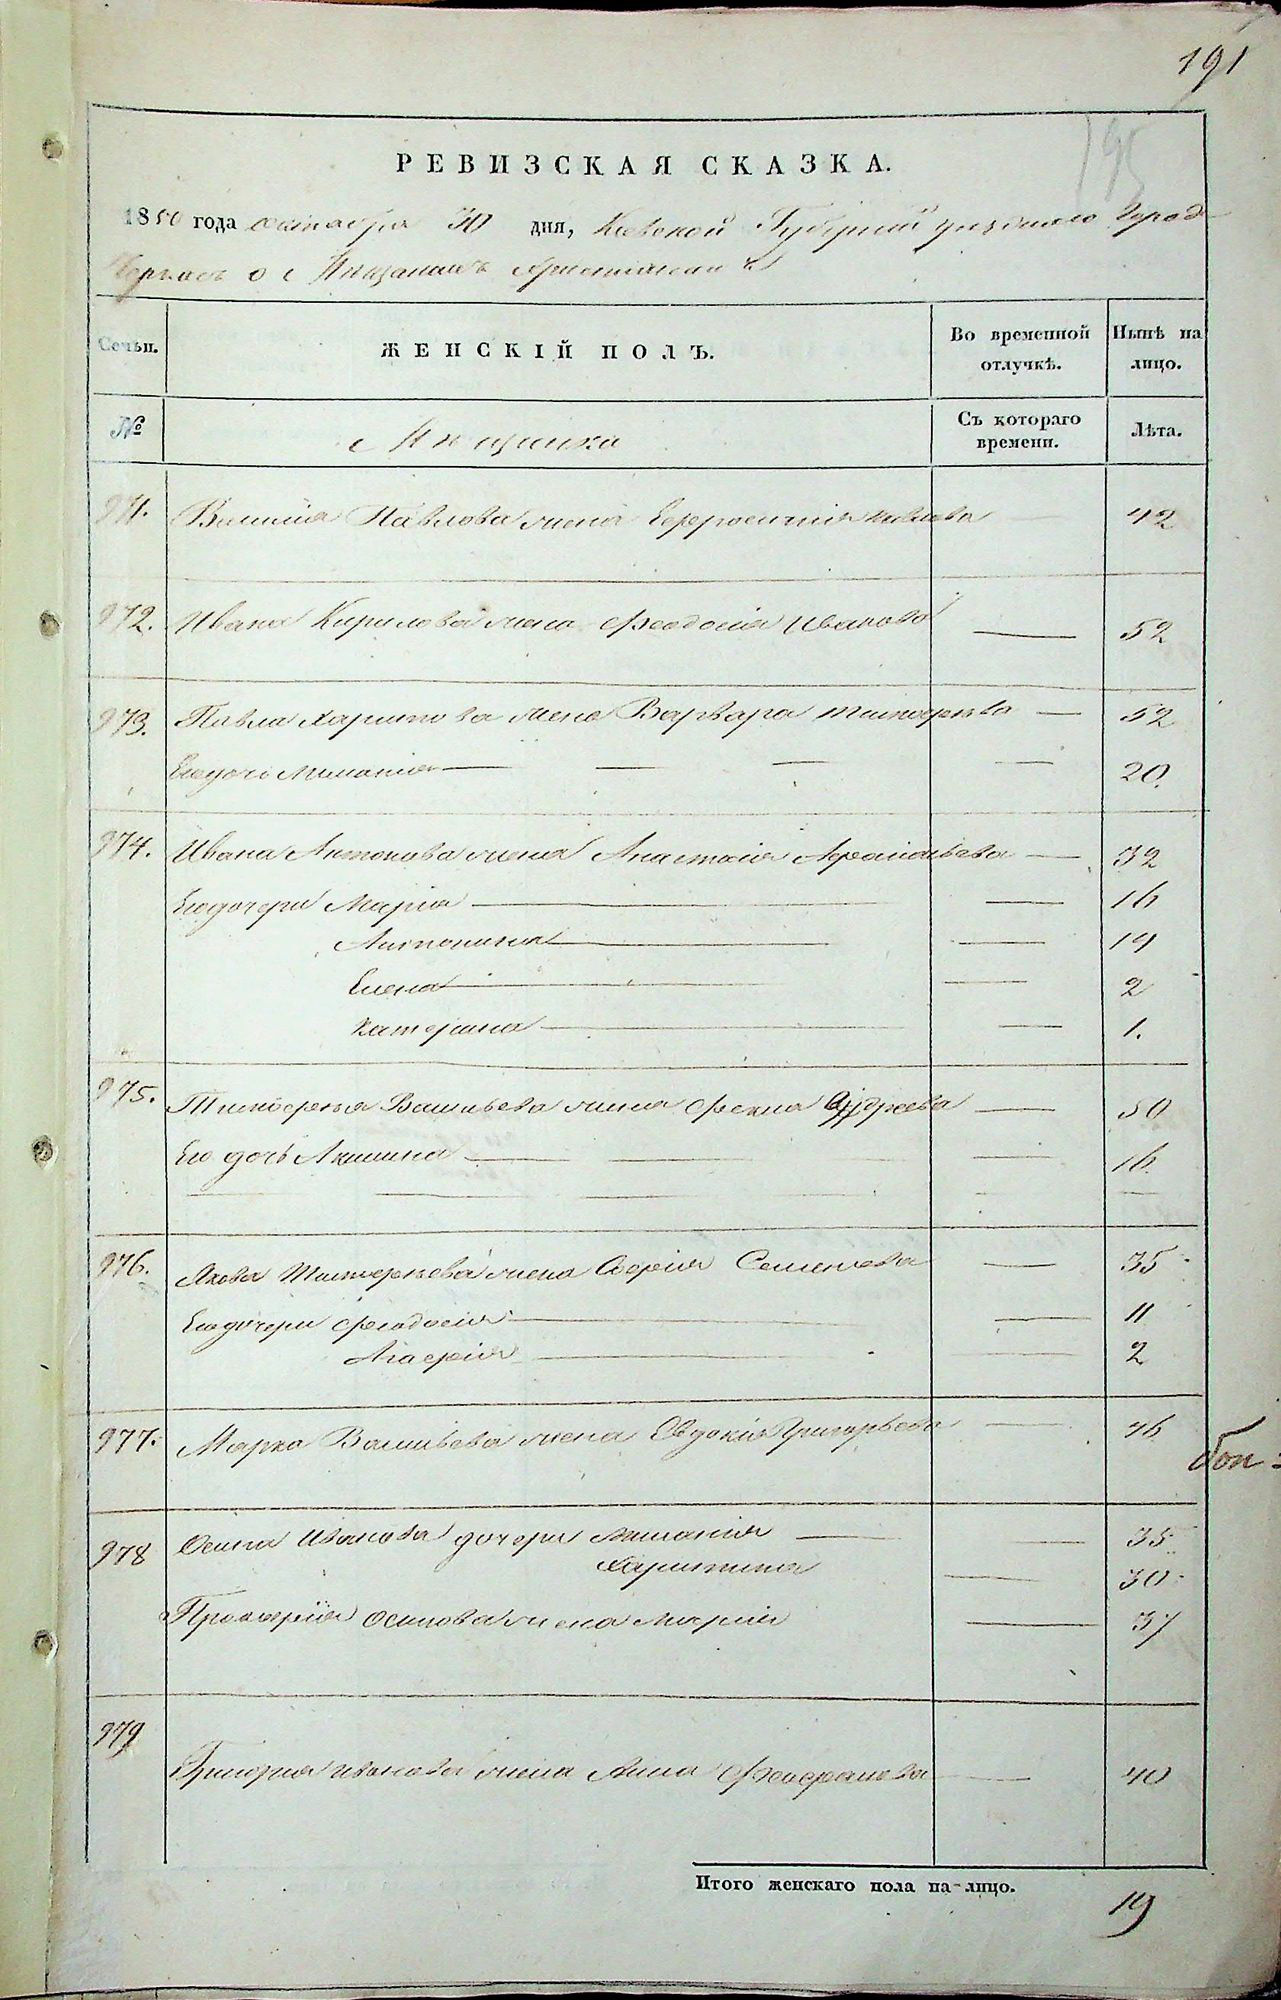 191
195
РЕВИЗСКАЯ СКАЗКА.
1850 года октября 30 дня, Киевской Губернии уезднаго Город
Черкас о с
Семьи. ЖЕНСКІЙ ПОЛЪ. Во временной отлучкѣ. Нынѣ на лицо.
№ Съ котораго времени. Лѣта.
971. Василія Павлова жена Ефросинія Павлова — 42
972. Ивана Кирилова жена Феодосія Иванова — 52
973. Павла Харитонова жена Варвара Тимофеева — 52
Его дочь Меланія — — — — 20.
974. Ивана Антонова жена Анастасія Афанасьева — 32
Его дочери Марія — — 16
Антонина — — 14
Елена — — 2
Катерина — — 1.
975. Тимофея Васильева жена Фекла Андреева — 50
Его дочь Акилина — — — 16
976. Якова Тимофеева жена Софія Семенова — 35
Его дочери Феодосія — — 11
Агафія — — 2
977. Марка Васильева жена Евдокія Григорьева — 46
978 Осипа Иванова дочери Меланія — — 35
Харитина — 30
Прокофія Осипова жена Марія — 37
979
Григорія Иванова жена Анна — 40
Итого женскаго пола на-лицо.
19